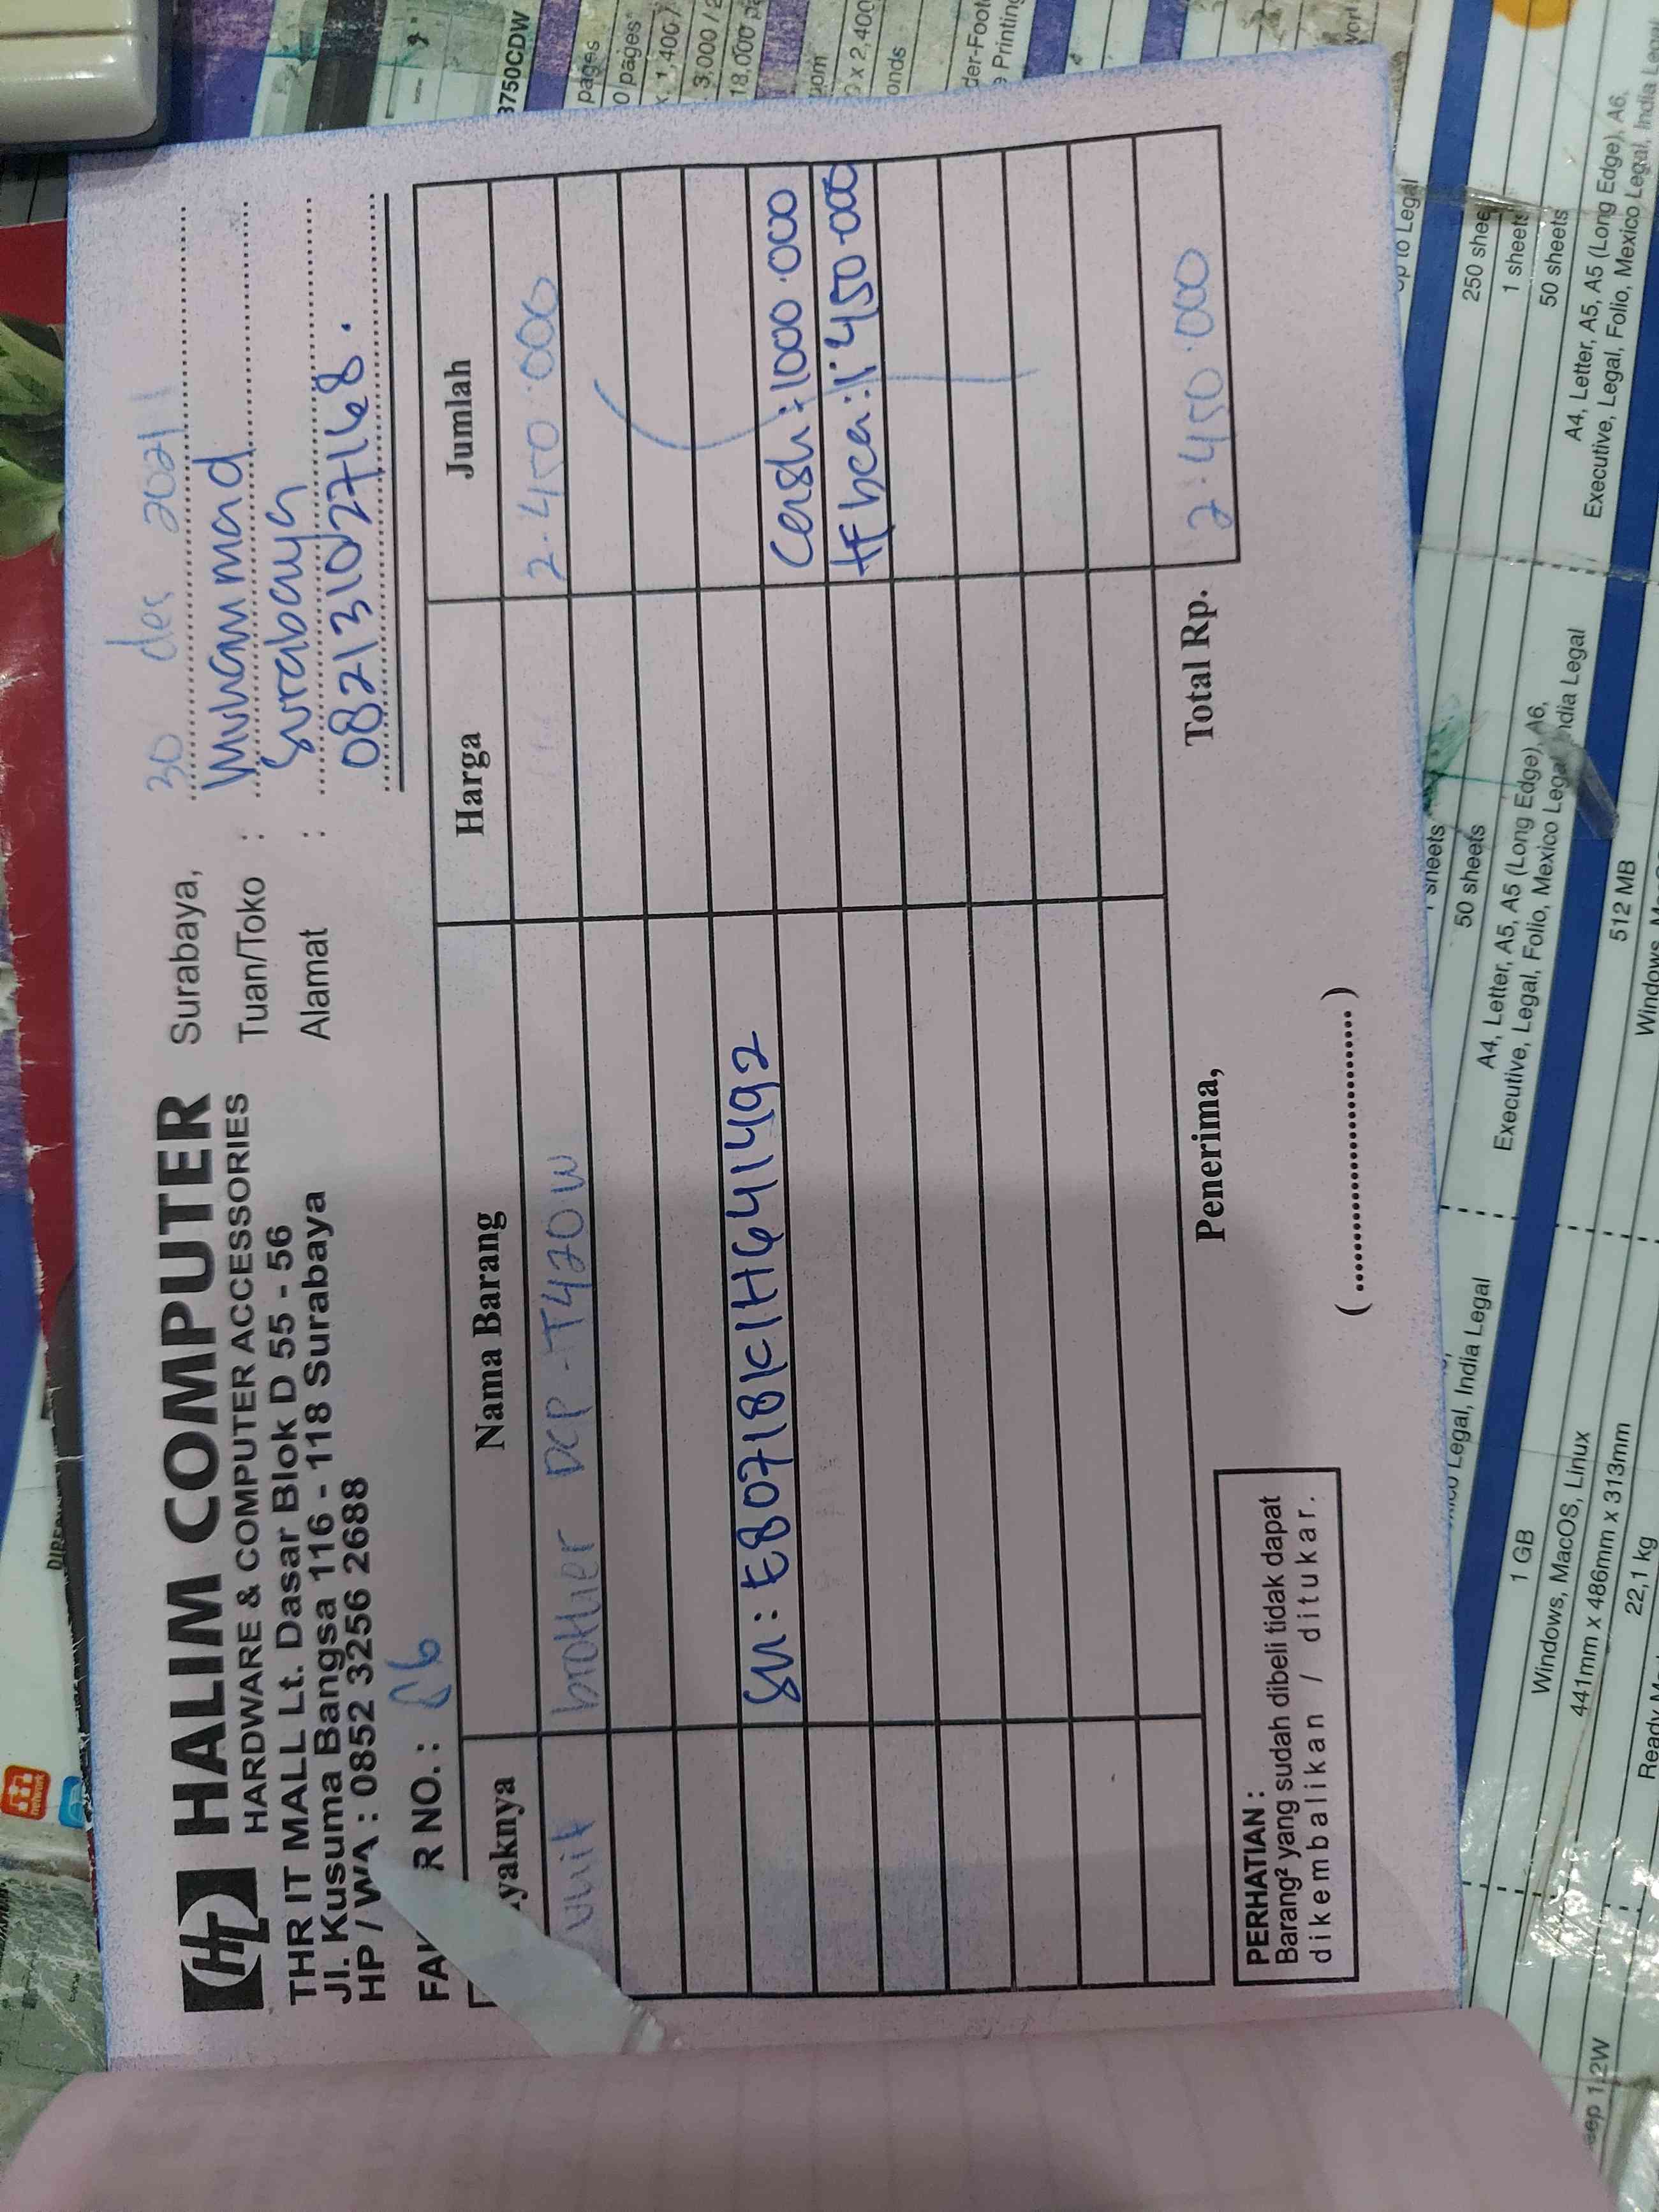 HL HALIM COMPUTER
HARDWARE & COMPUTER ACCESSORIES
THR IT MALL Lt. Dasar Blok D 55 - 56
Jl. Kusuma Bangsa 116 - 118 Surabaya
HP / WA : 0852 3256 2688
Surabaya, 30 des 2021
Tuan/Toko : Muhammad
Alamat : Surabaya
082131027168.
R NO. : 86
yaknya Nama Barang Harga Jumlah
unit brother DCP-T420W 2.450.000
SN : E80718K1H641492
Cash : 1000.000
tf bca : 1.450.000
Total Rp. 2.450.000
Penerima,
(........................)
PERHATIAN :
Barang² yang sudah dibeli tidak dapat
dikembalikan / ditukar.
3750CDW
pages
0 pages
18,000
x 2,400
onds
der-Foot
e Printing
up to Legal
250 shee
1 sheets
50 sheets
A4, Letter, A5, A5 (Long Edge), A6,
Executive, Legal, Folio, Mexico Legal, India Legal
sheets
50 sheets
A4, Letter, A5, A5 (Long Edge), A6,
Executive, Legal, Folio, Mexico Legal, India Legal
512 MB
Legal, India Legal
1 GB
Windows, MacOS, Linux
441mm x 486mm x 313mm
22,1 kg
1,2W
network